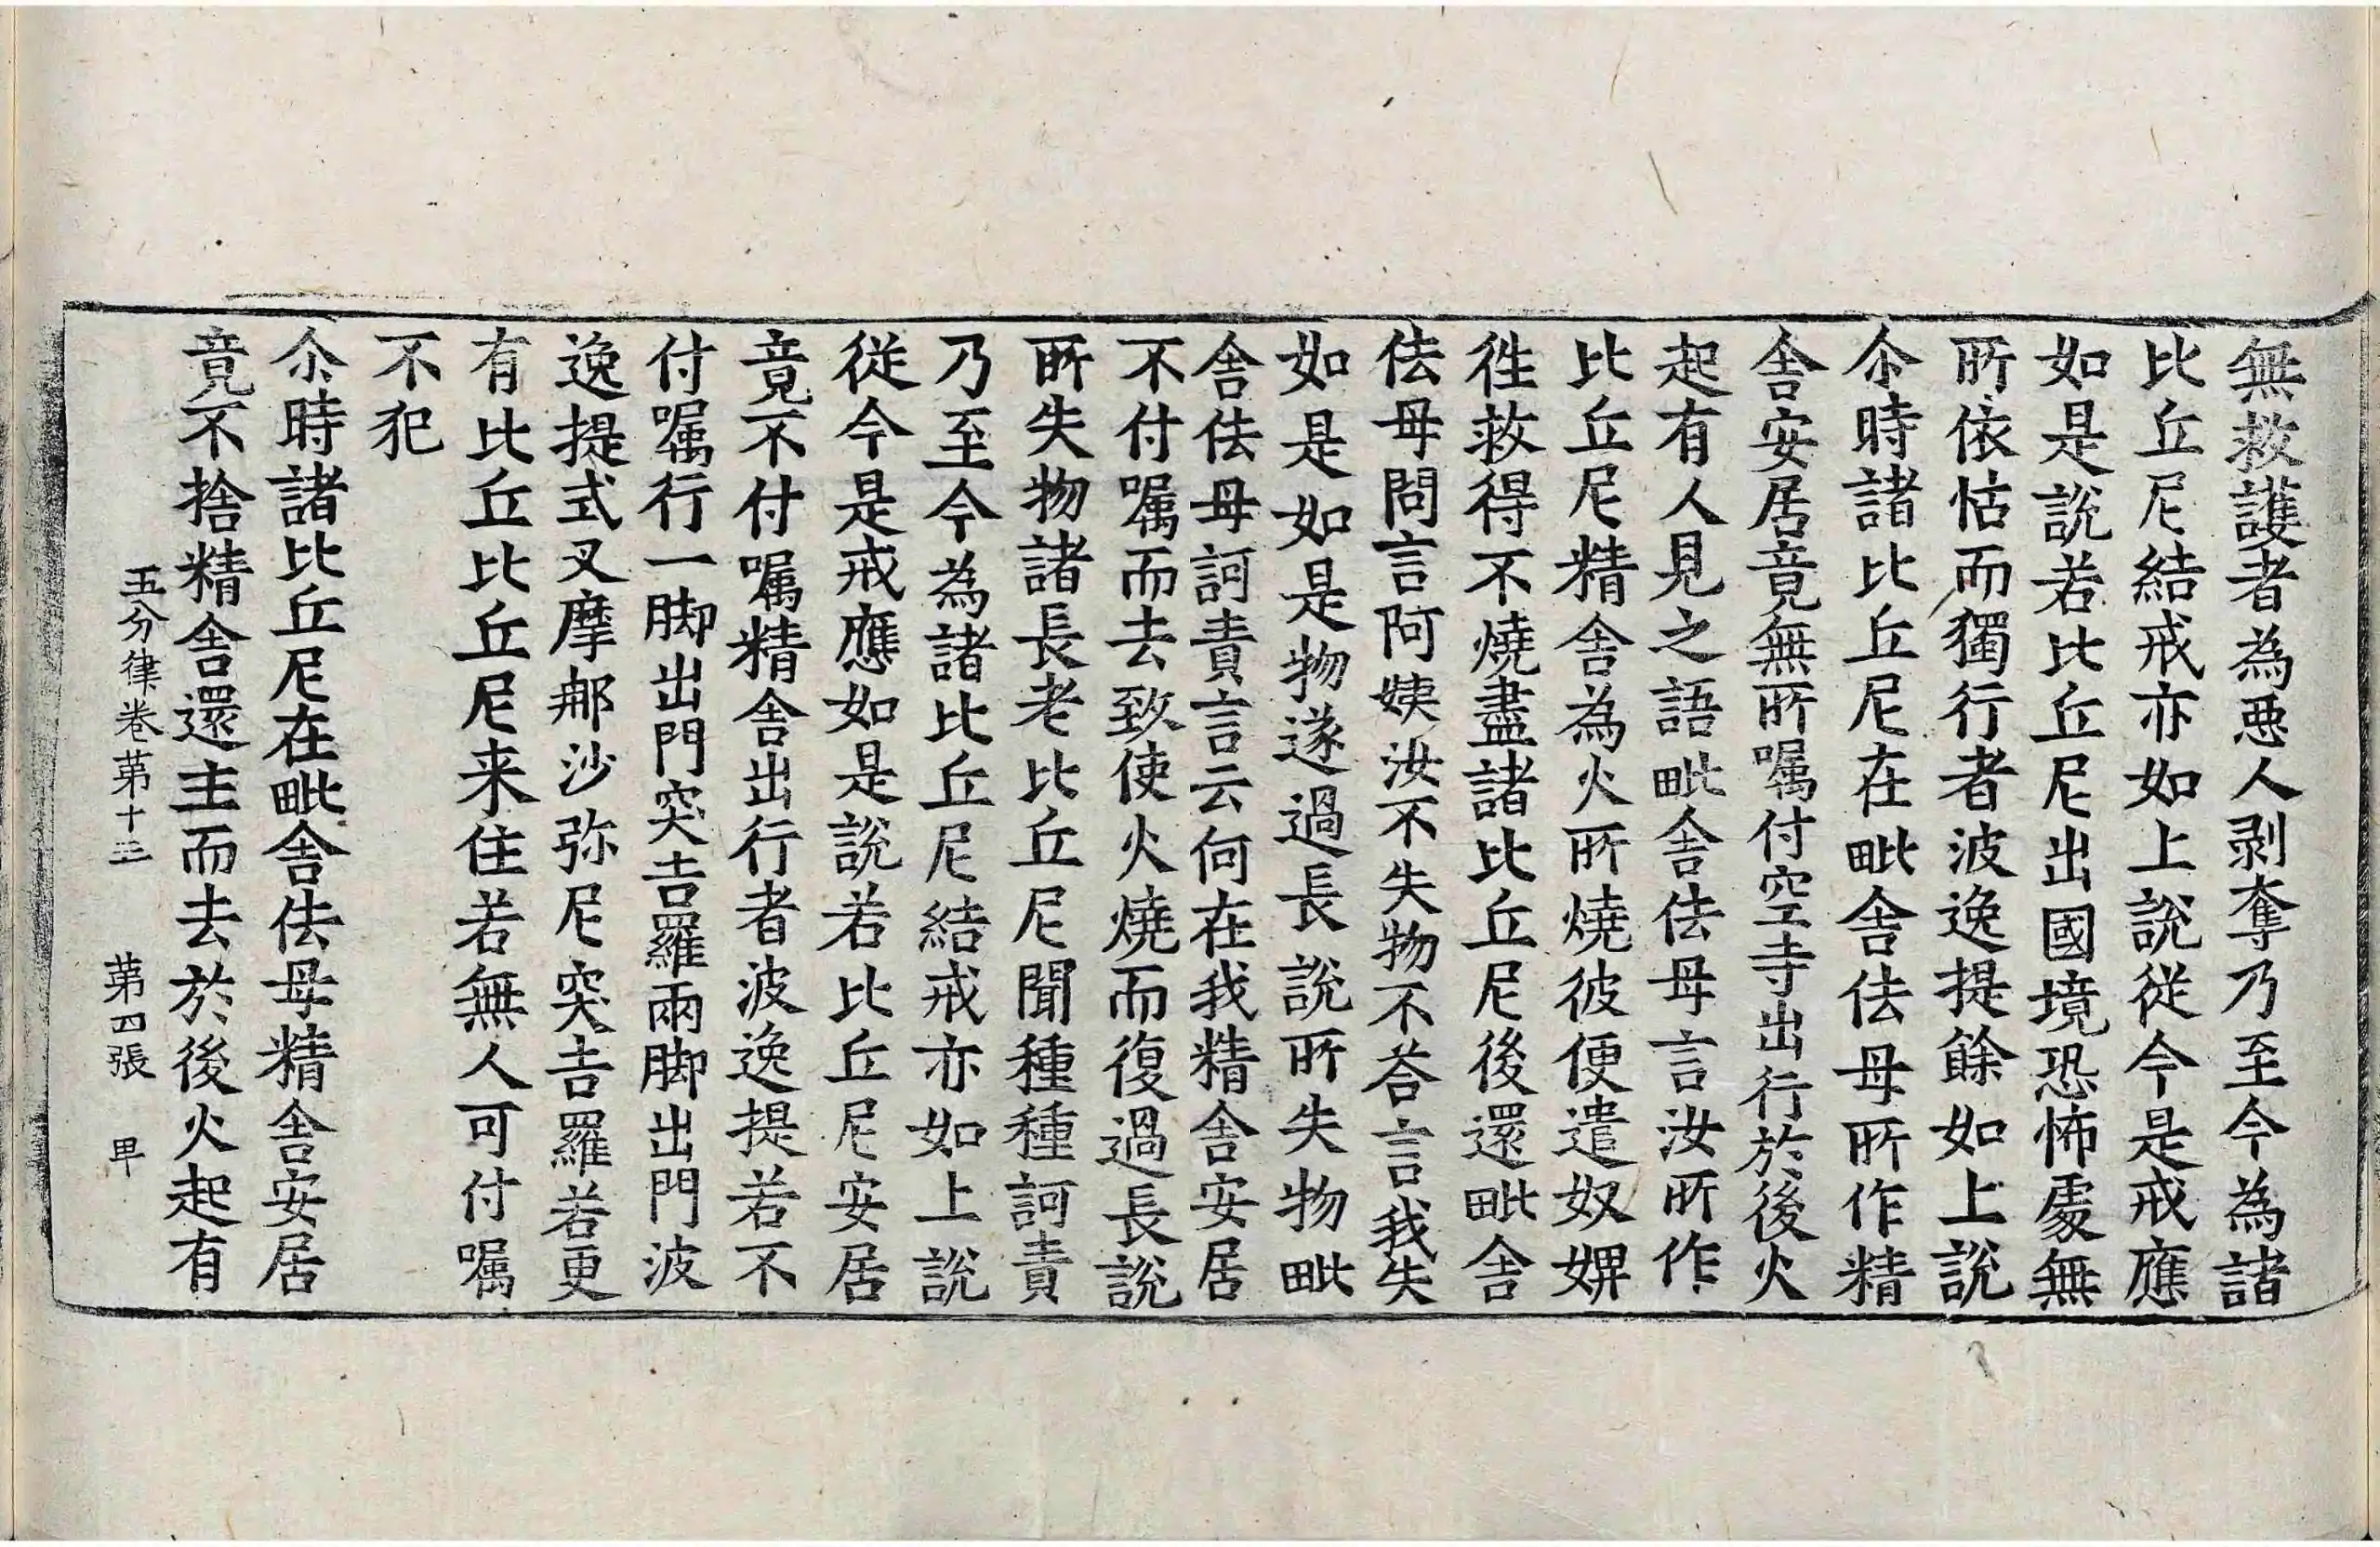 無救護者為惡人剥奪乃至今為諸
比丘尼結戒亦如上說従今是戒應
如是說若比丘尼出國境恐怖處無
所依怙而獨行者波逸提餘如上說
尒時諸比丘尼在毗舍佉母所作精
舍安居竟無所嘱付空寺出行於後火
起有人見之語毗舍佉母言汝所作
比丘尼精舍為火所燒彼便遣奴婢
徃救得不燒盡諸比丘尼後還毗舍
佉母問言阿姨汝不失物不荅言我失
如是如是物遂過長說所失物毗
舍佉母訶責言云何在我精舍安居
不付嘱而去致使火燒而復過長說
所失物諸長老比丘尼聞種種訶責
乃至今為諸比丘尼結戒亦如上說
従今是戒應如是說若比丘尼安居
竟不付嘱精舍出行者波逸提若不
付嘱行一脚出門突吉羅兩脚出門波
逸提式叉摩那沙弥尼突吉羅若更
有比丘比丘尼来住若無人可付嘱
不犯
尒時諸比丘尼在毗舍佉母精舍安居
竟不捨精舍還主而去於後火起有
五分律卷第十三 第四張 甲